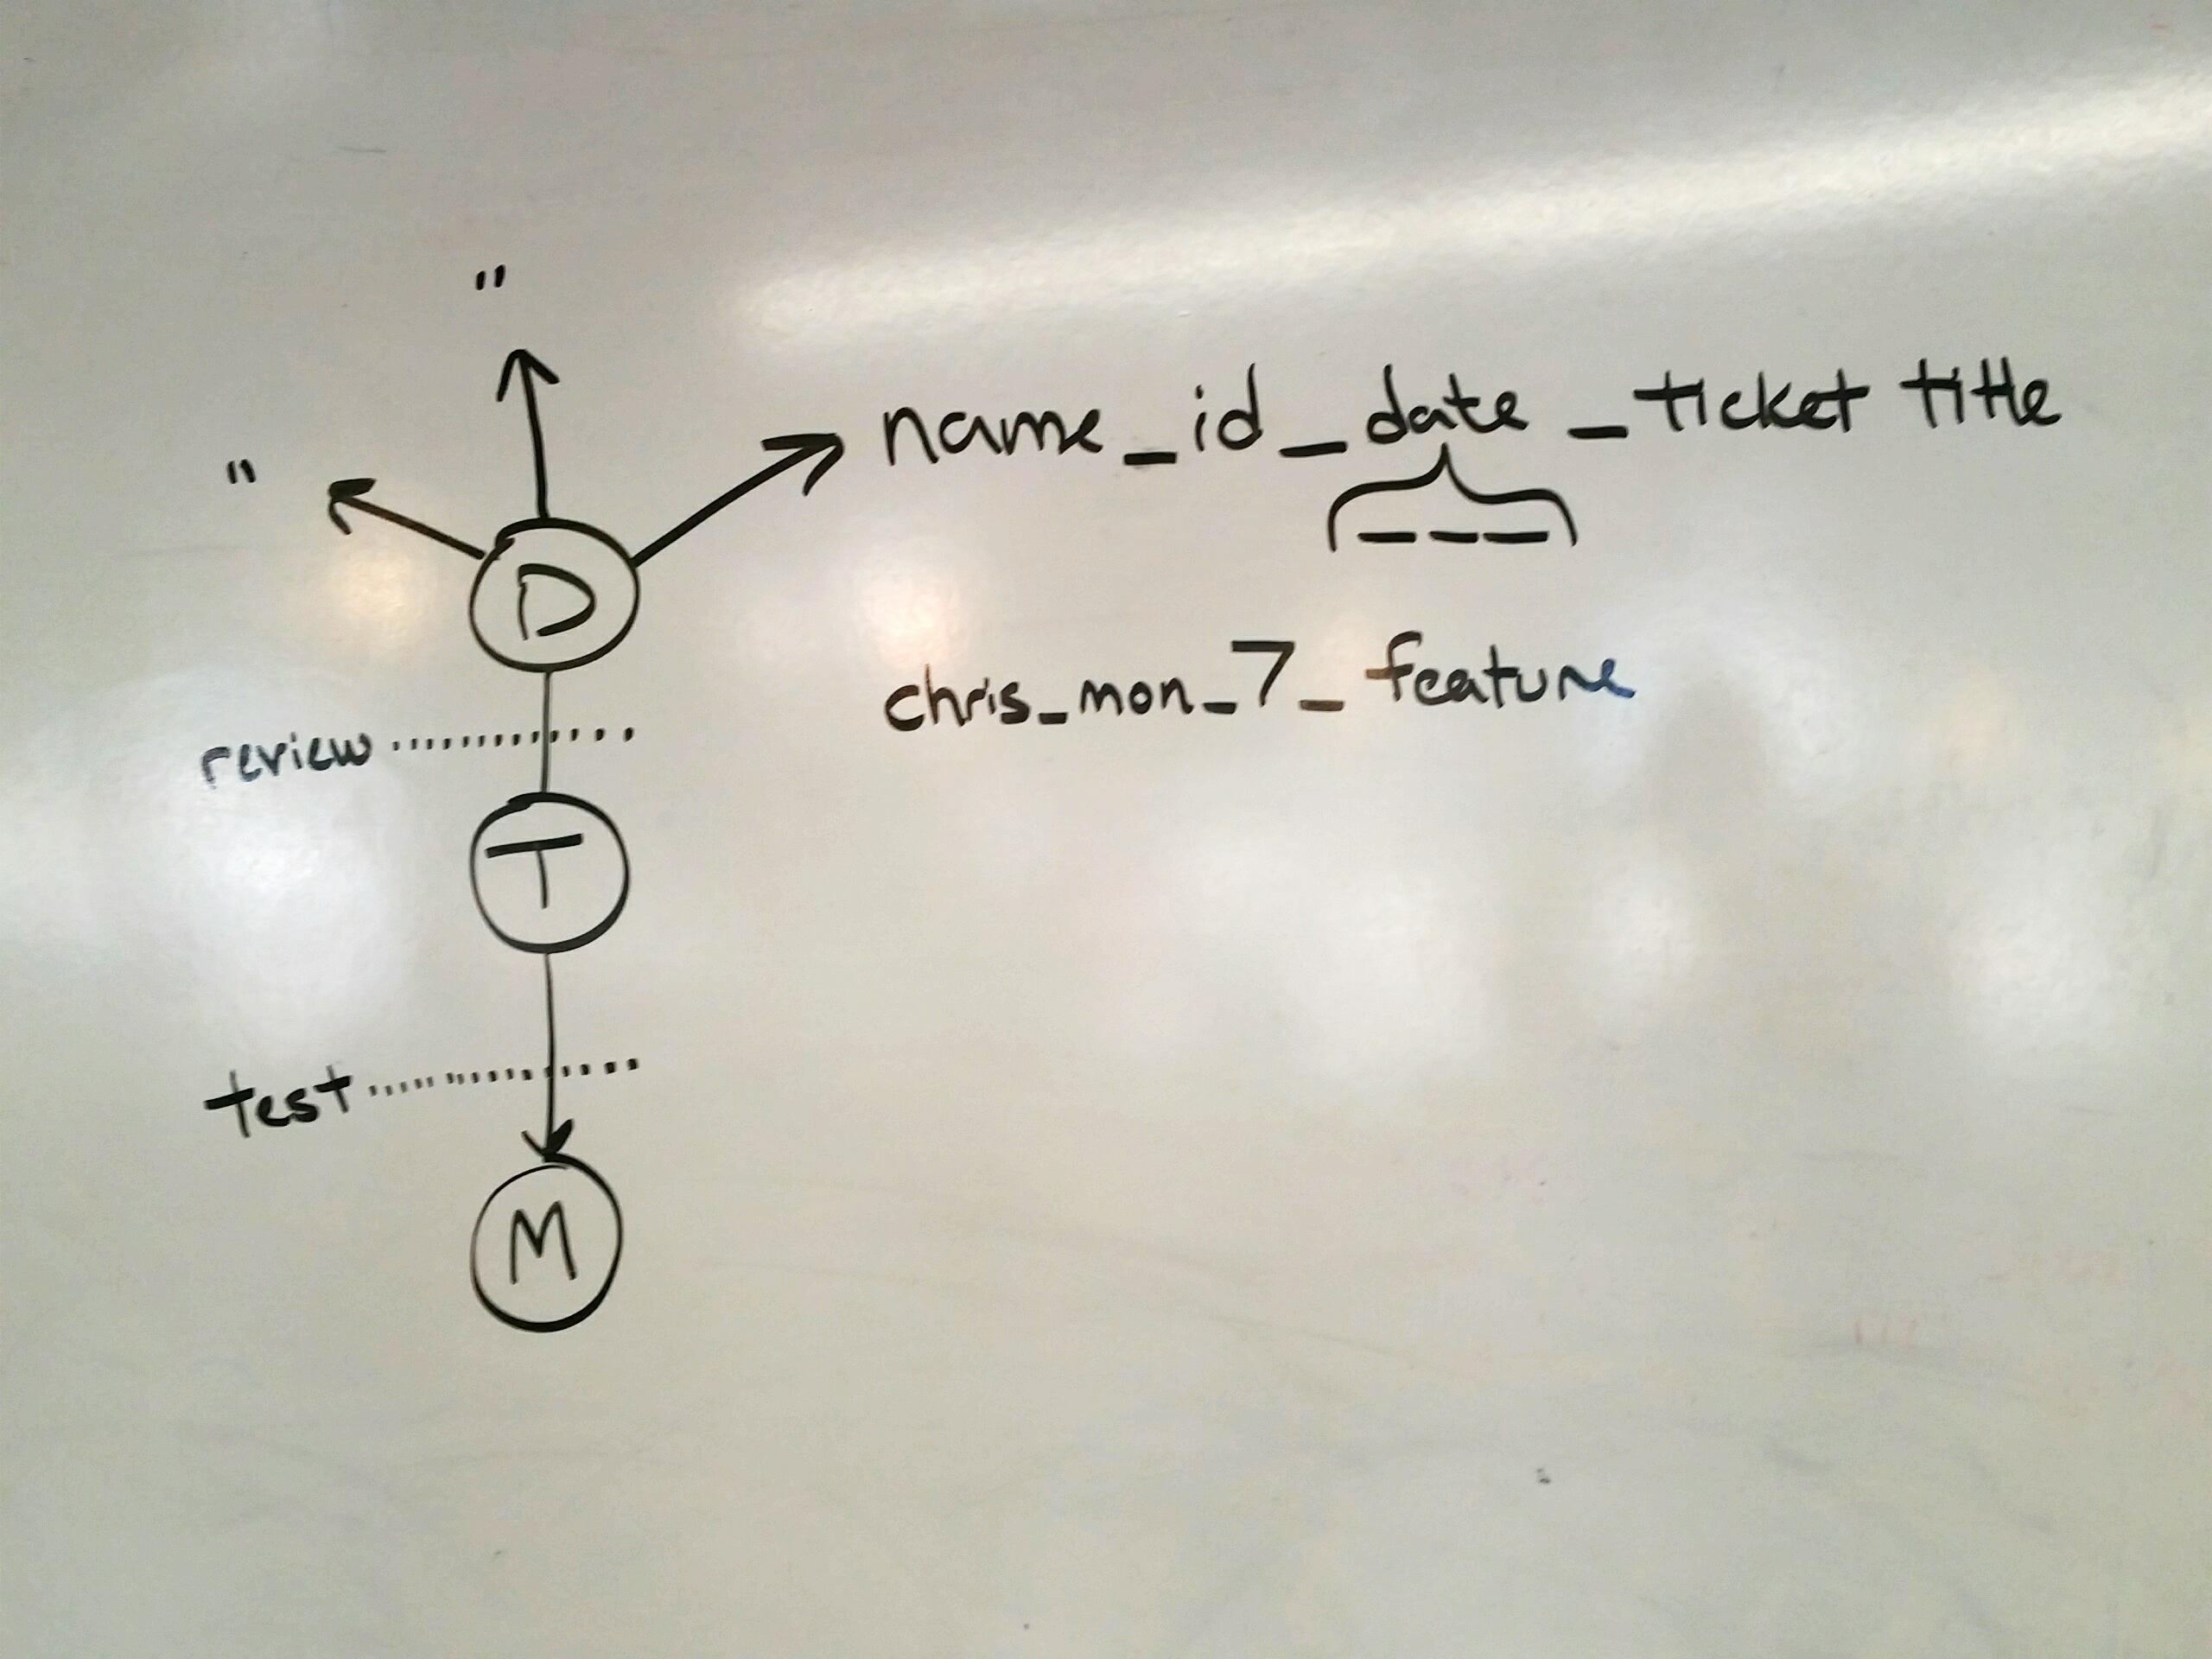 "
name_id_date_ticket title
"
___
D
chris_mon_7_feature
review
T
test
M